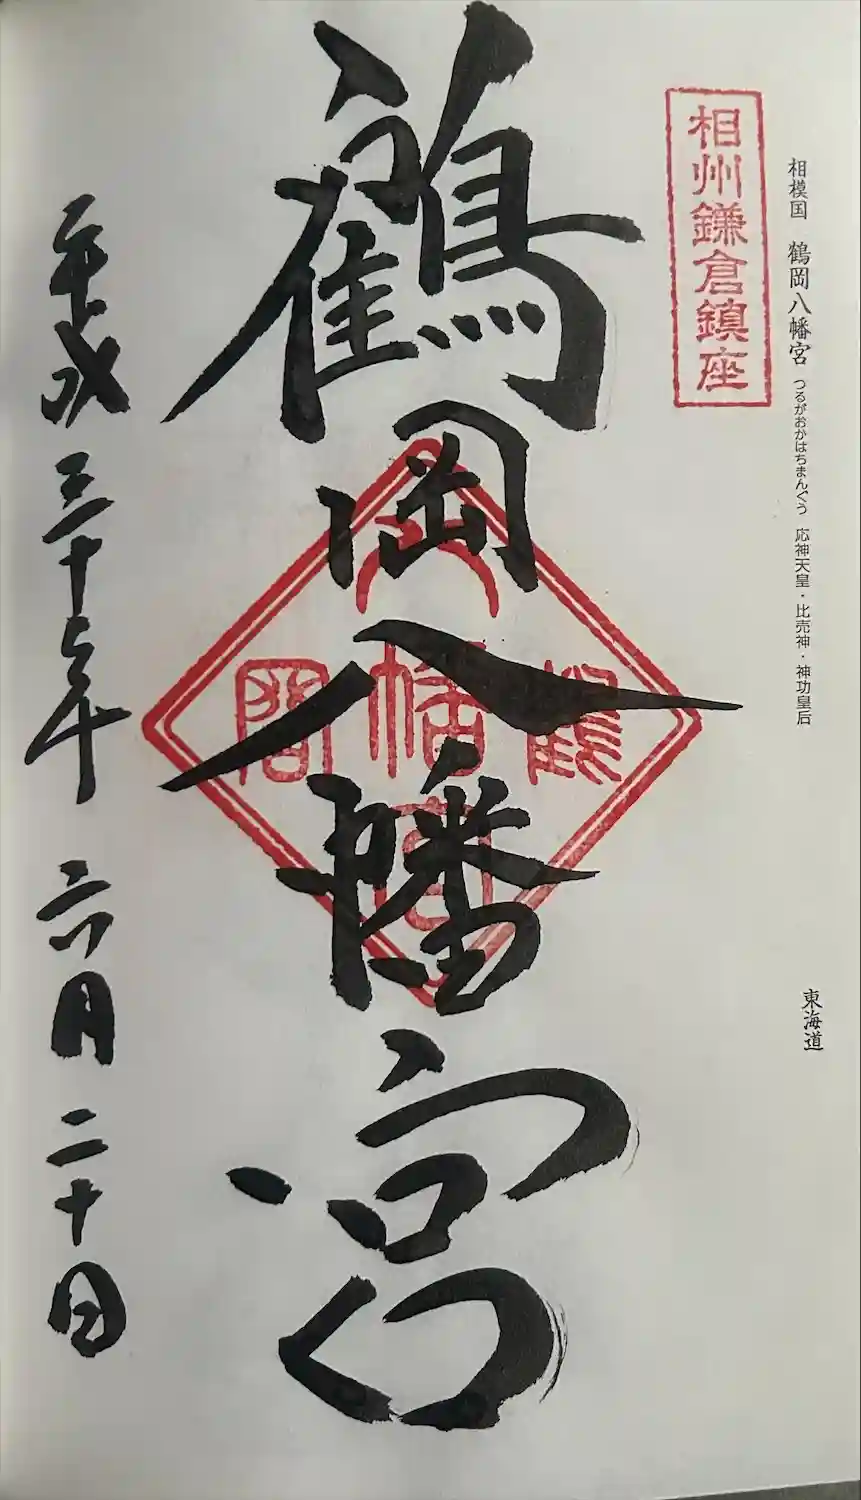 相模国 鶴岡八幡宮 つるがおかはちまんぐう 応神天皇・比売神・神功皇后
東海道
相州鎌倉鎮座
鶴岡八幡宮
鶴岡八幡宮
平成三十年 六月二十日